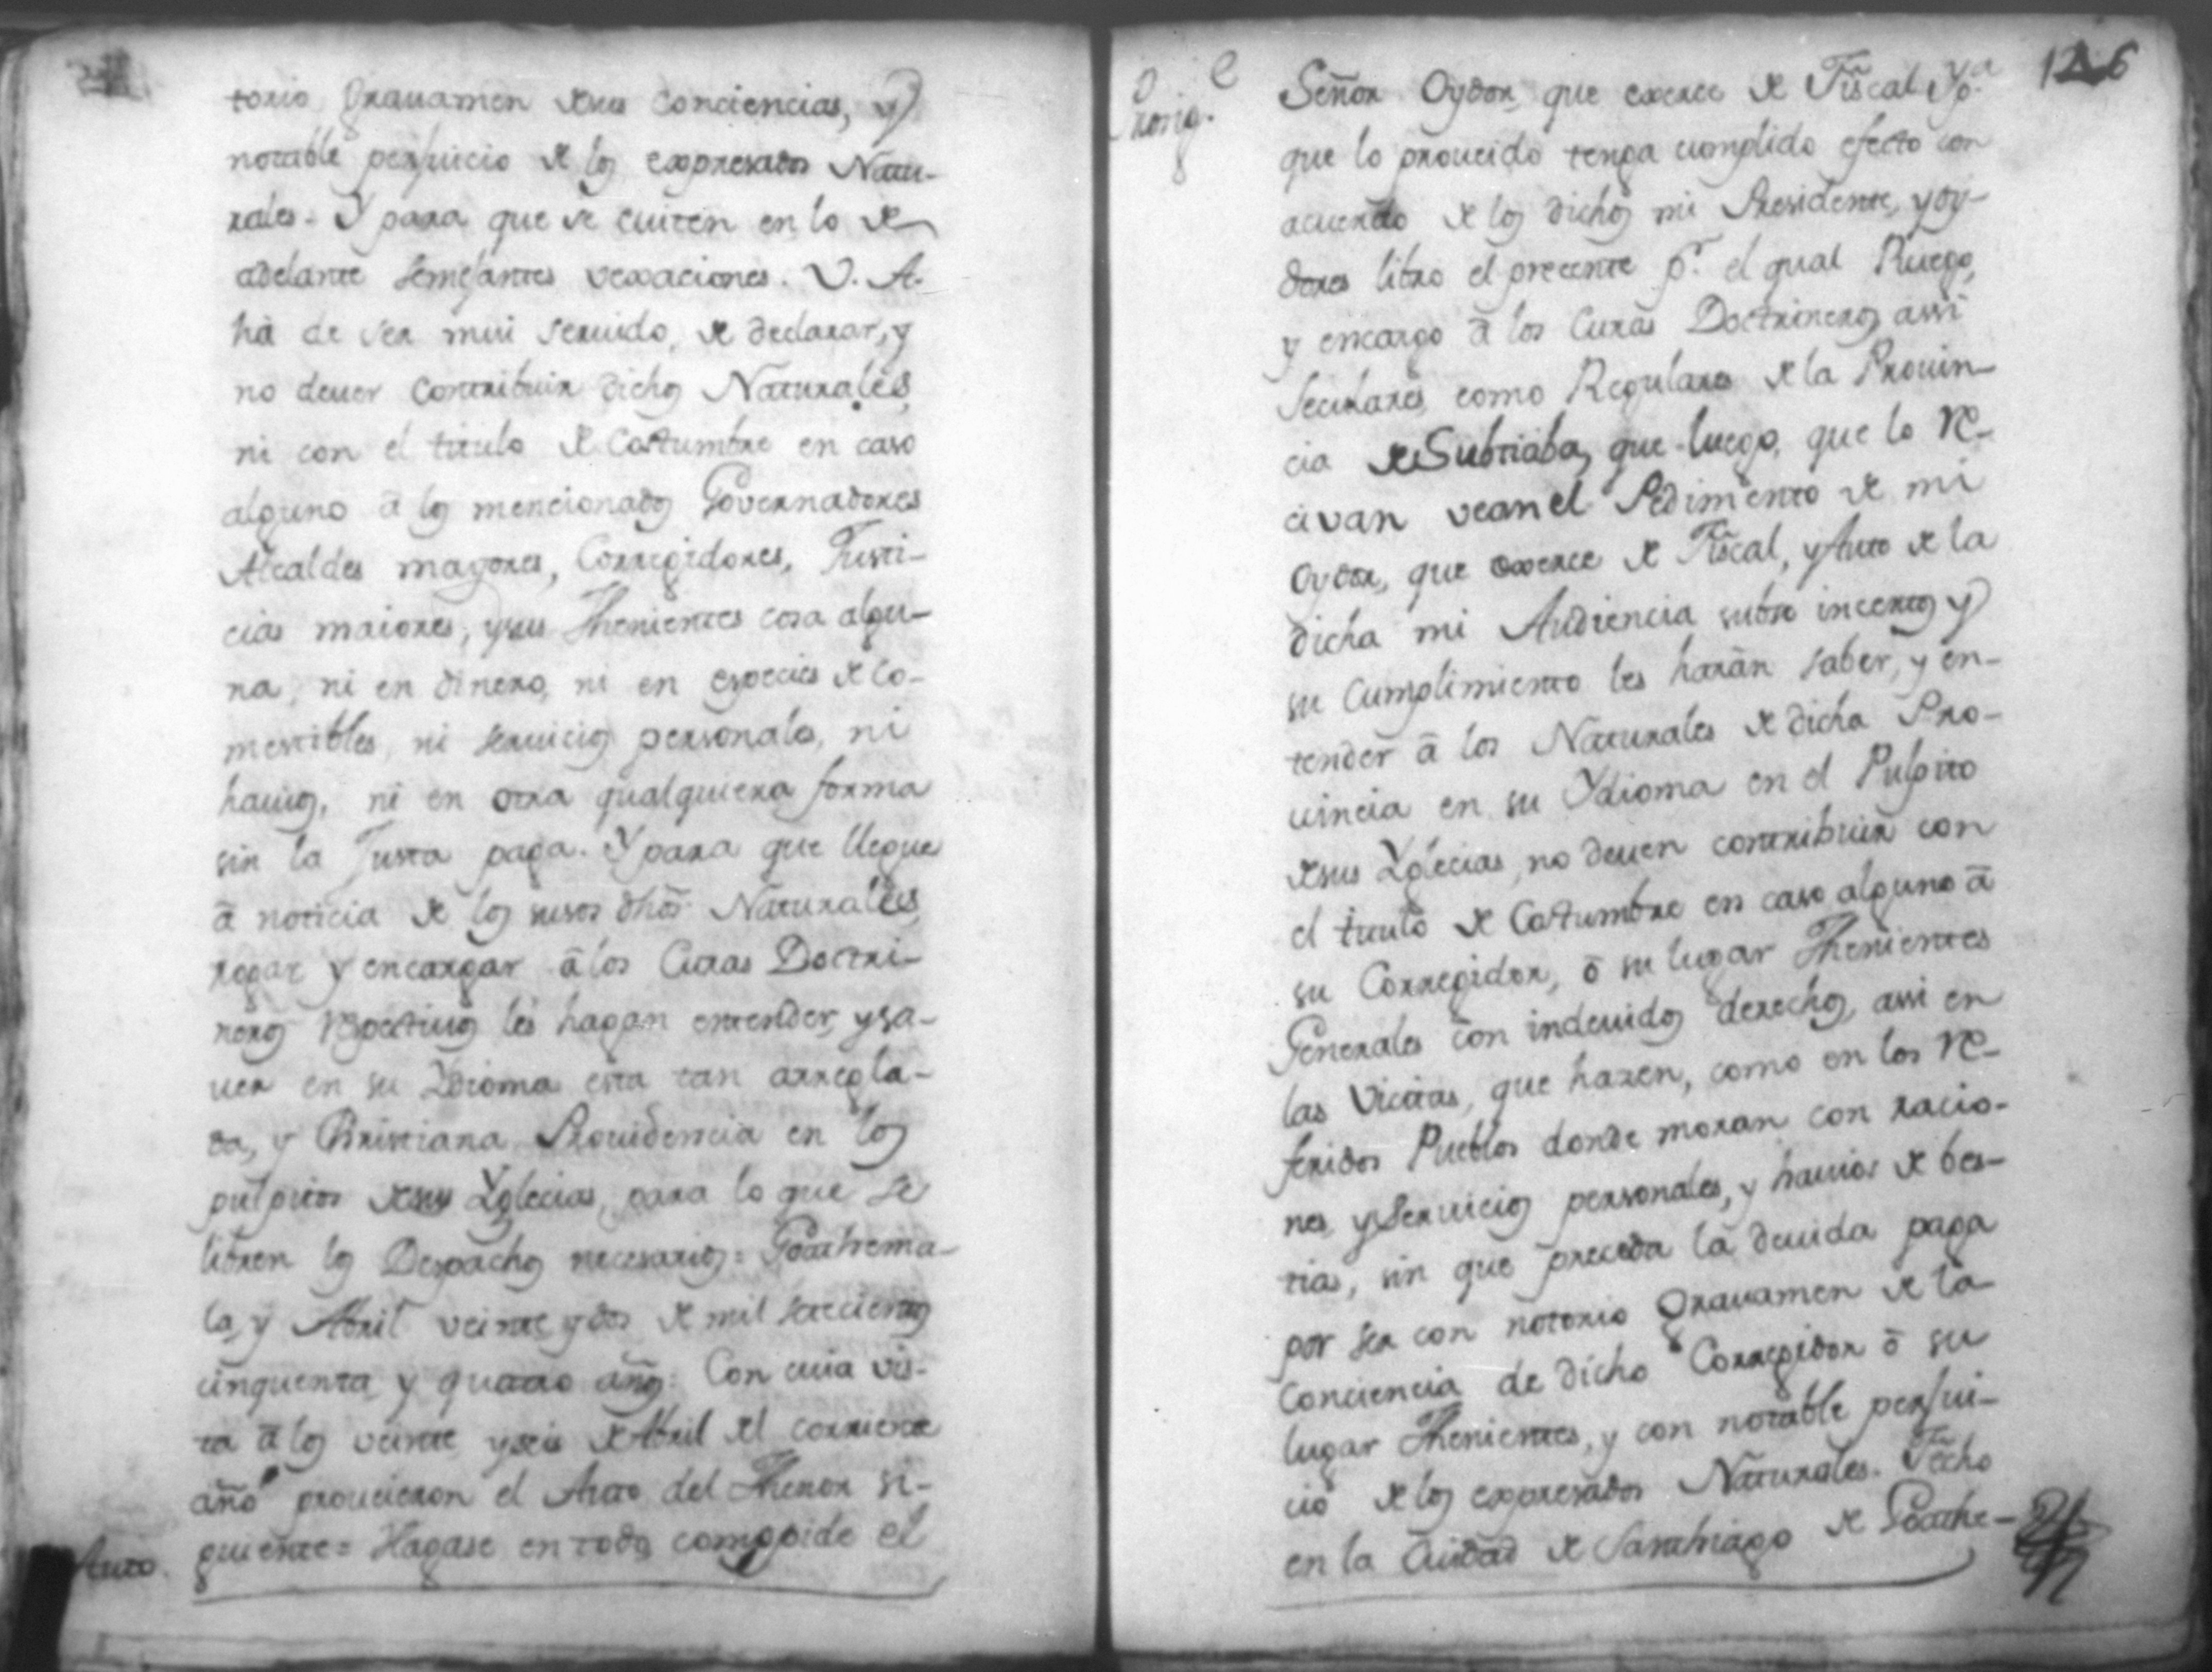 torio Gravamen de sus Conciencias, y
notable perjuicio de los expresados Natu-
rales. Y para que se eviten en lo de
adelante semejantes vexaciones. V. A.
hà de ser mui seruido, de declarar, y
no deuer Contribuir dichos Naturales,
ni con el titulo de Costumbre en caso
alguno â los mencionados Governadores
Alcaldes mayores, Corregidores, Justi-
cias maiores, y sus Thenientes cosa algu-
na, ni en dinero, ni en especies de Co-
mestibles, ni seruicios personales, ni
hauios, ni en otra qualquiera forma
sin la Justa paga. Y para que llegue
â noticia de los susos dhõs Naturales,
rogar y encargar â los Curas Doctri-
neros respectiuos les hagan entender, y sa-
uer en su Ydioma esta tan arregla-
da, y Christiana Prouidencia en los
pulpitos de sus Yglecias, para lo que se
libren los Despachos necesarios = Goathema-
la, y Abril veinte y dos de mil setecientos
cinquenta y quatro años = Con cuia vis-
ta â los veinte y seis de Abril del corriente
año proueieron el Auto del Thenor si-
Auto. guiente = Hagase en todo como pide el
126
Señor Oydor, que exerce de Fiscal, y pa.
que lo proueido tenga cumplido efecto con
acuerdo de los dichos mi Presidente, y oy-
dores libro el precente pr. el qual Ruego,
y encargo â los Curas Doctrineros assi
Seculares, como Regulares de la Prouin-
cia de Subtiaba, que luego, que lo re-
civan vean el Pedimento de mi
Oydor, que exerce de Fiscal, y Auto de la
dicha mi Audiencia subso incertos y
su Cumplimiento les harân saber, y en-
tender â los Naturales de dicha Pro-
uincia en su Ydioma en el Pulpito
de sus Yglecias, no deuen contribuir con
el titulo de Costumbre en caso alguno â
su Corregidor, ô su lugar Thenientes
Generales con indeuidos derechos, assi en
las Vicitas, que hazen, como en los re-
feridos Pueblos donde moran con racio-
nes, y Seruicios personales, y hauios de bes-
tias, sin que preceda la deuida paga
por ser con notorio Gravamen de la
Conciencia de dicho Corregidor ô su
lugar Thenientes, y con notable perjui-
cio de los expresados Naturales. Fecho
en la Ciudad de Santhiago de Goathe-